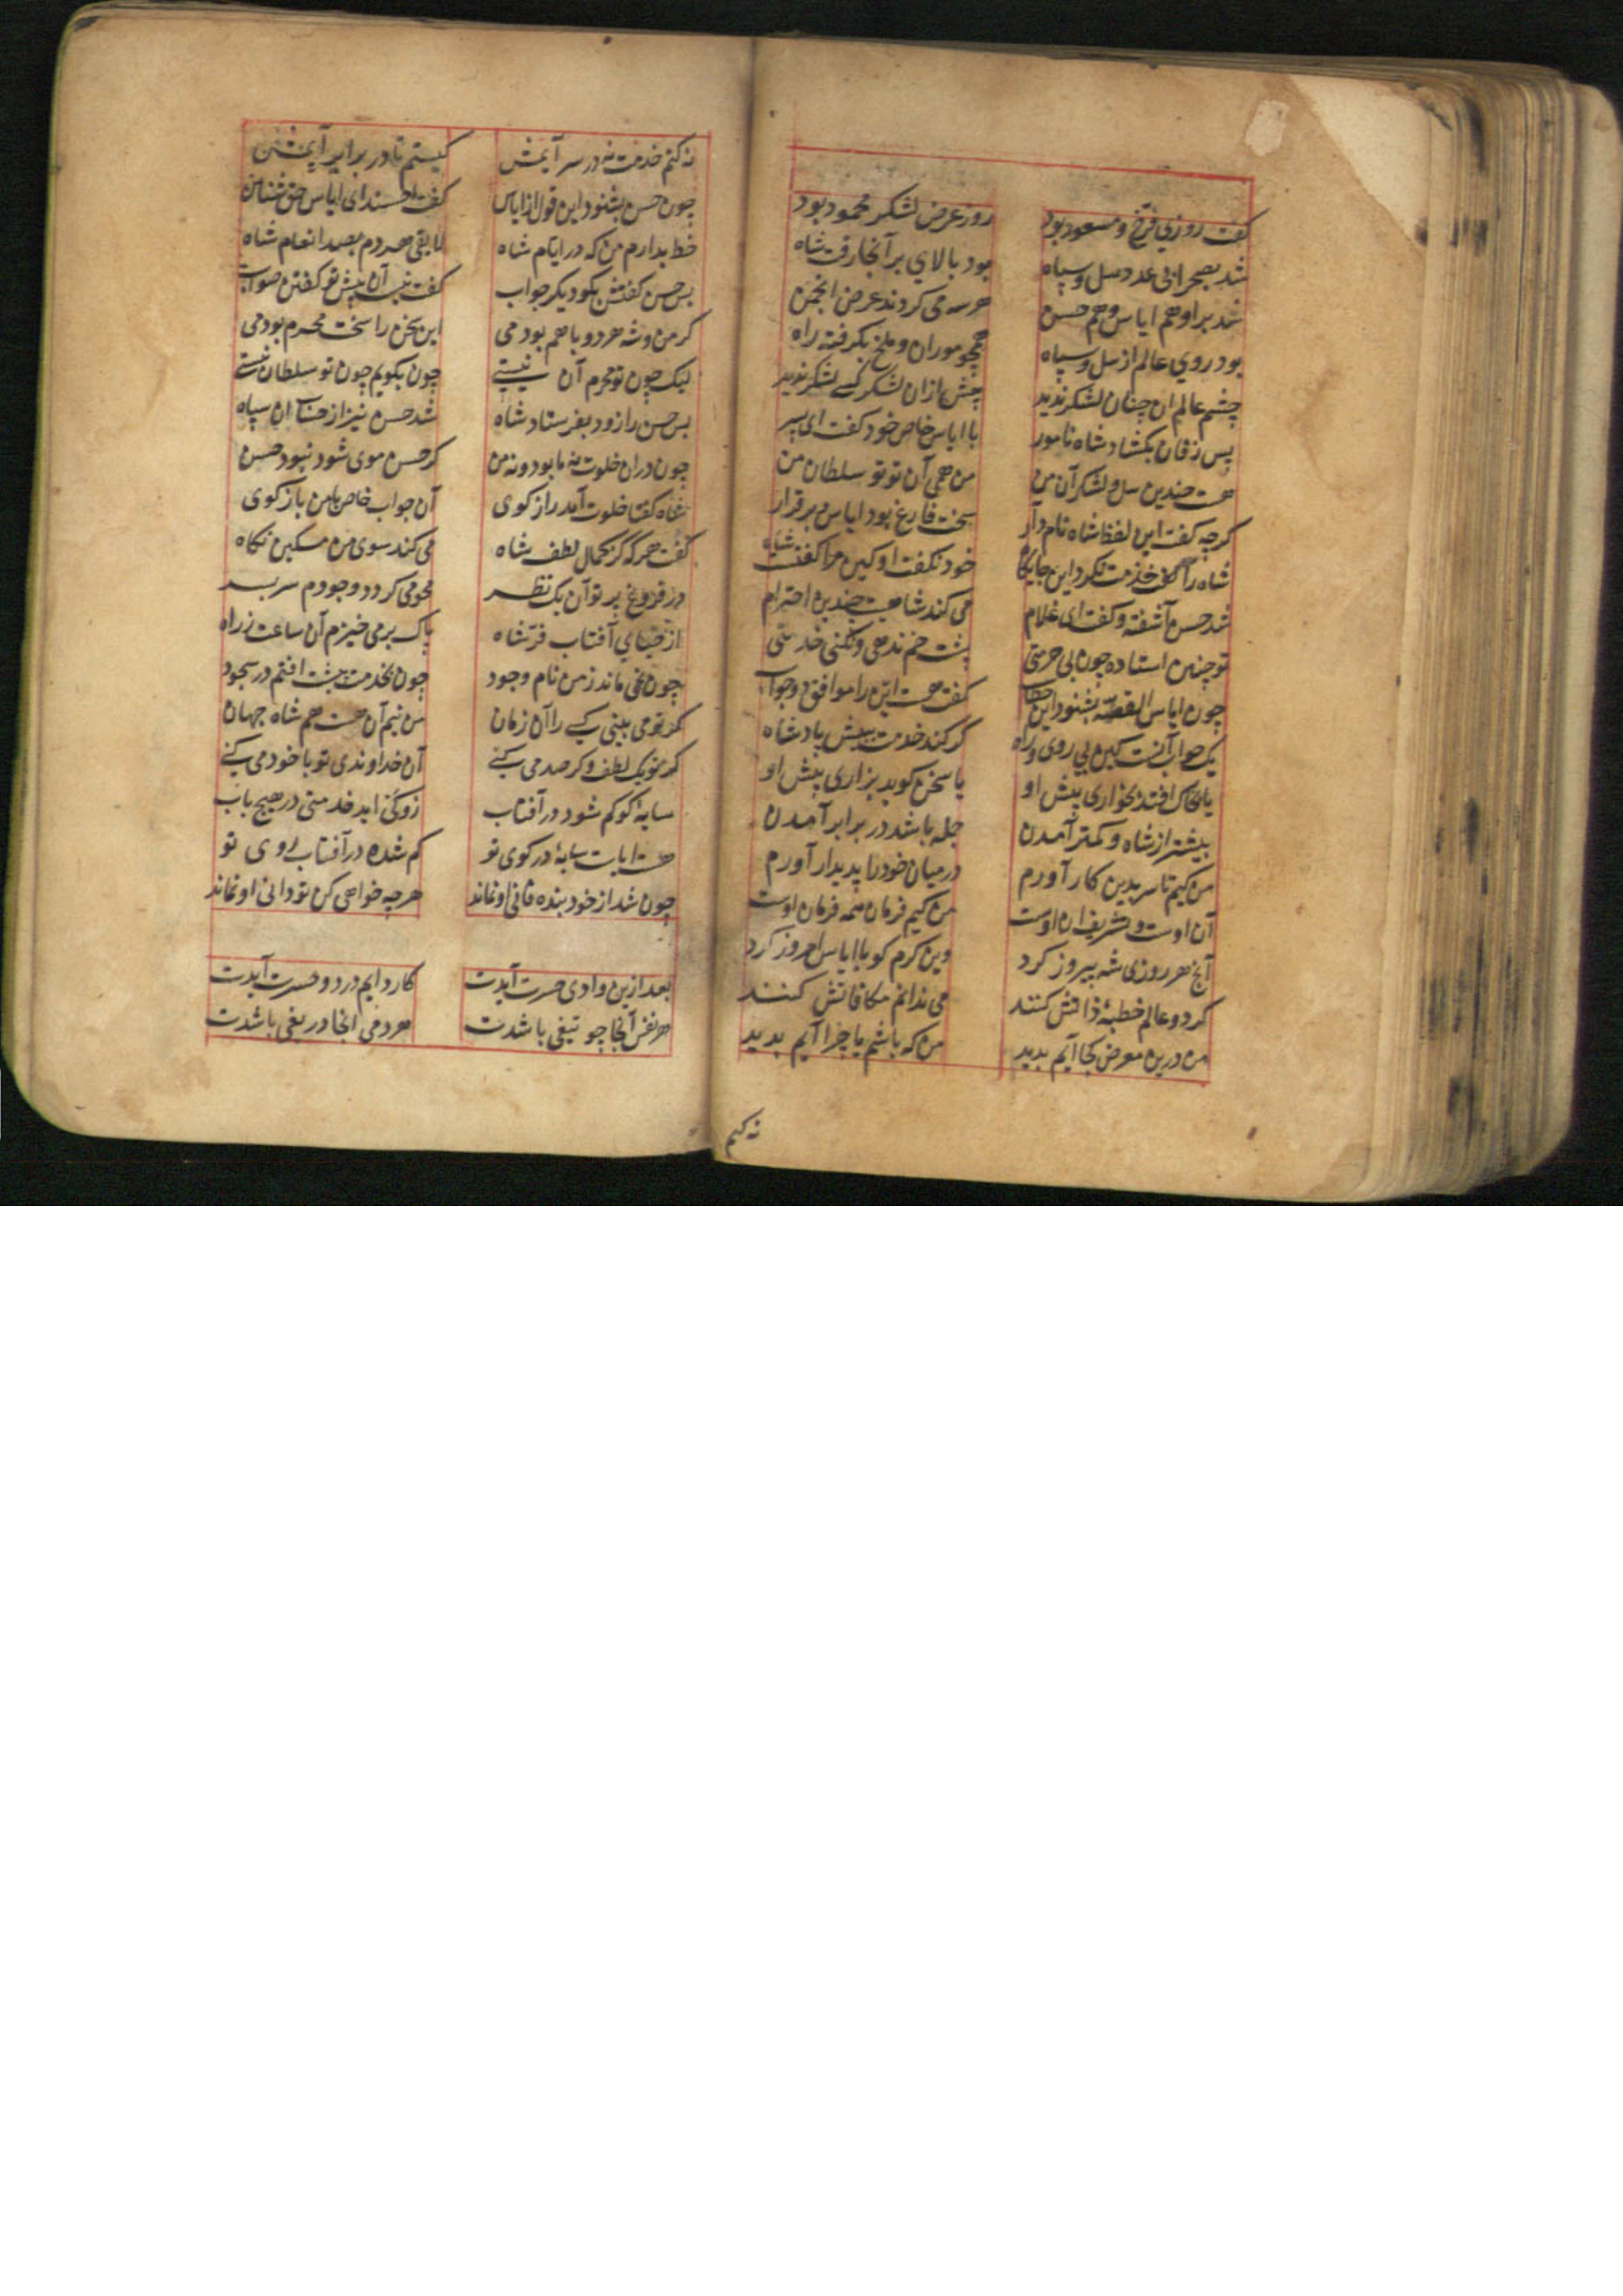 گفت روزی فرخ و مسعود بود روز عرض لشکر محمود بود
شد بصحرا بی عدد سل و سپاه بود بالای بر آنجا رفت شاه
شد بر او هم ایاس و هم حسن هر سه می کردند عرض انجمن
بود روی عالم از سل و سپاه همچو موران و ملخ بگرفته راه
چشم عالم آن چنان لشکر ندید پیش ازان لشکر کسی لشکر ندید
پس زفان بکشاد شاه نامور با ایاس خاص خود گفت ای پسر
هست چندین سل و لشکر آن من من همی آن تو تو سلطان من
گرچه گفت این لفظ شاه نام دار سخت فارغ بود ایاس و برقرار
شاه را خدمت نکرد این جایگاه خود نگفت او کین مرا گفتست شاه
شد حسن آشفته و گفت ای غلام می کند شاهیت چندین احترام
تو چنین استاده چون بی حرمتی پشت خم ندهی و نکنی خدمتی
چون ایاس القصه بشنود این خطاب گفت هست این را موافق دو جواب
یک جواب آنست کین بی روی و راه گر کند خدمت به پیش پادشاه
یا بخاک افتد بخواری پیش او یا سخن گوید بزاری پیش او
بیشتر از شاه و کمتر آمدن جمله باشد در برابر آمدن
من کیم تا سر بدین کار آورم در میان خود را پدیدار آورم
آن اوست و تشریف آن اوست من کیم فرمان همه فرمان اوست
آنچ هر روزی شه پیروز کرد وین کرم کو با ایاس امروز کرد
گر دو عالم خطبهٔ ذاتش کنند می ندانم مکافاتش کنند
من درین معرض کجا آیم بدید من که باشم یا چرا آیم بدید
نه کنم
نه کنم خدمت نه در سر آیمش کیستم تا در برابر آیمش
چون حسن بشنود این قول از ایاس گفت احسنت ای ایاس حق شناس
خط بدادم من که در ایام شاه لایقی هر دم بصد انعام شاه
پس حسن گفتش بگو دیگر جواب گفت نیست آن پیش تو گفتن صواب
گر من و شه هر دو با هم بودمی این سخن را سخت محرم بودمی
لیک چون تو محرم آن نیستی چون بگویم چون تو سلطان نیستی
پس حسن را زود بفرستاد شاه شد حسن نیز از حساب آن سپاه
چون دران خلوت نه ما بود و نه من گر حسن موی شود نبود حسن
شاه گفتا خلوت آمد راز گوی آن جواب خاص با من بازگوی
گفت هرگه کز کمال لطف شاه می کند سوی من مسکین نگاه
در فروغ پرتو آن یک نظر محو می گردد وجودم سر بسر
از حیای آفتاب فر شاه پاک بر می خیزم آن ساعت ز راه
چون نمی ماند ز من نام وجود چون بخدمت پیشت افتم در سجود
گر تو می بینی کسی را آن زمان من نیم آن هست هم شاه جهان
گر تو یک لطف و گر صد می کنی آن خداوندی تو با خود می کنی
سایهٔ کو گم شود در آفتاب زو کی آید خدمتی در هیچ باب
هست ایاست سایهٔ در کوی تو گم شده در آفتاب روی تو
چون شد از خود بنده فانی او نماند هرچه خواهی کن تو دانی او نماند
بعد ازین وادی حیرت آیدت کار دایم درد و حسرت آیدت
هر نفس آنجا چو تیغی باشدت هر دمی آنجا دریغی باشدت